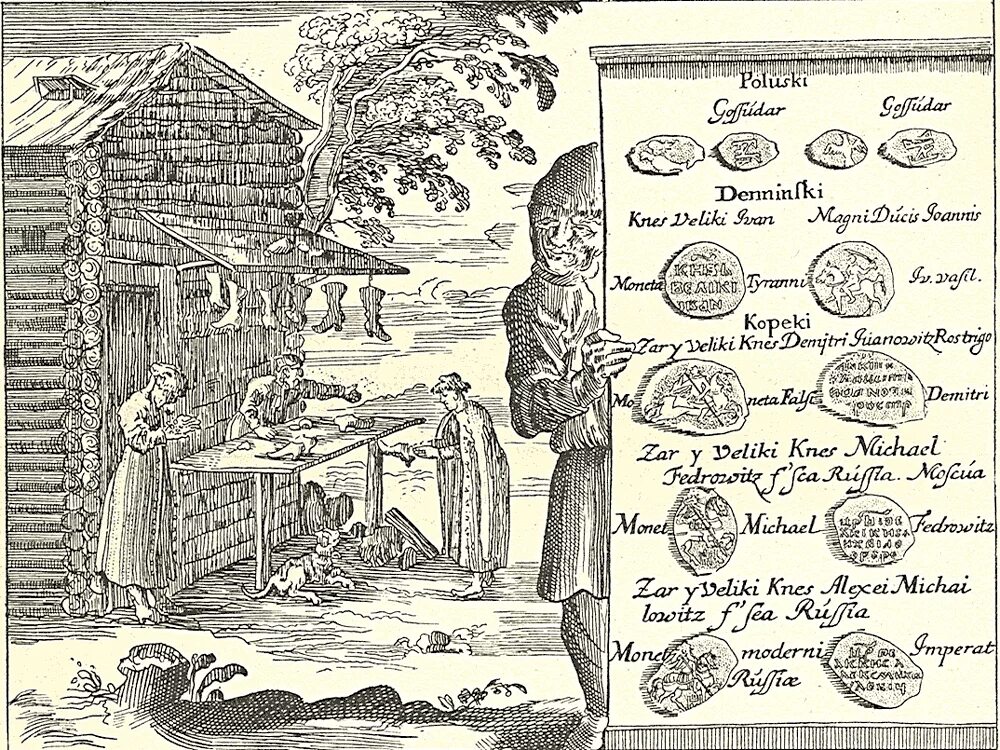 Poluski
Goſſúdar Goſſúdar
Denninſki
Knes Veliki Ivan Magni Dúcis Ioannis
Moneta Tyranni Iv. vasil.
КНѦЗЬ
ВЕЛІКІ
ІВАН
Kopeki
Zar y Veliki Knes Demjtri Iúanowitz Rostrigo
Mo neta Falsi Demitri
Zar y Veliki Knes Michael
Fedrowitz f'sea Rúſſia. Moscúa
Monet Michael Fedrowitz
Zar y Veliki Knes Alexei Michai
lowitz f'sea Rúſſia
Monet moderni Imperat
Rúſſiæ